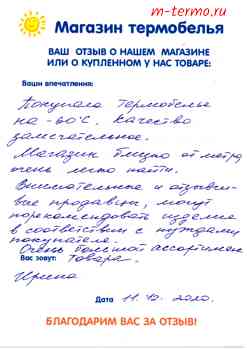 m-termo.ru
Магазин термобелья
ВАШ ОТЗЫВ О НАШЕМ МАГАЗИНЕ
ИЛИ О КУПЛЕННОМ У НАС ТОВАРЕ:
Ваши впечатления:
Покупала термобелье
на -60°C. Качество
замечательное.
Магазин близко от метро,
очень легко найти.
Внимательные и отзывчи-
вые продавцы, могут
порекомендовать изделие
в соответствии с нуждами
покупателя.
Очень большой ассортимент
товара.
Вас зовут:
Ирина
Дата 11.12.2020.
БЛАГОДАРИМ ВАС ЗА ОТЗЫВ!